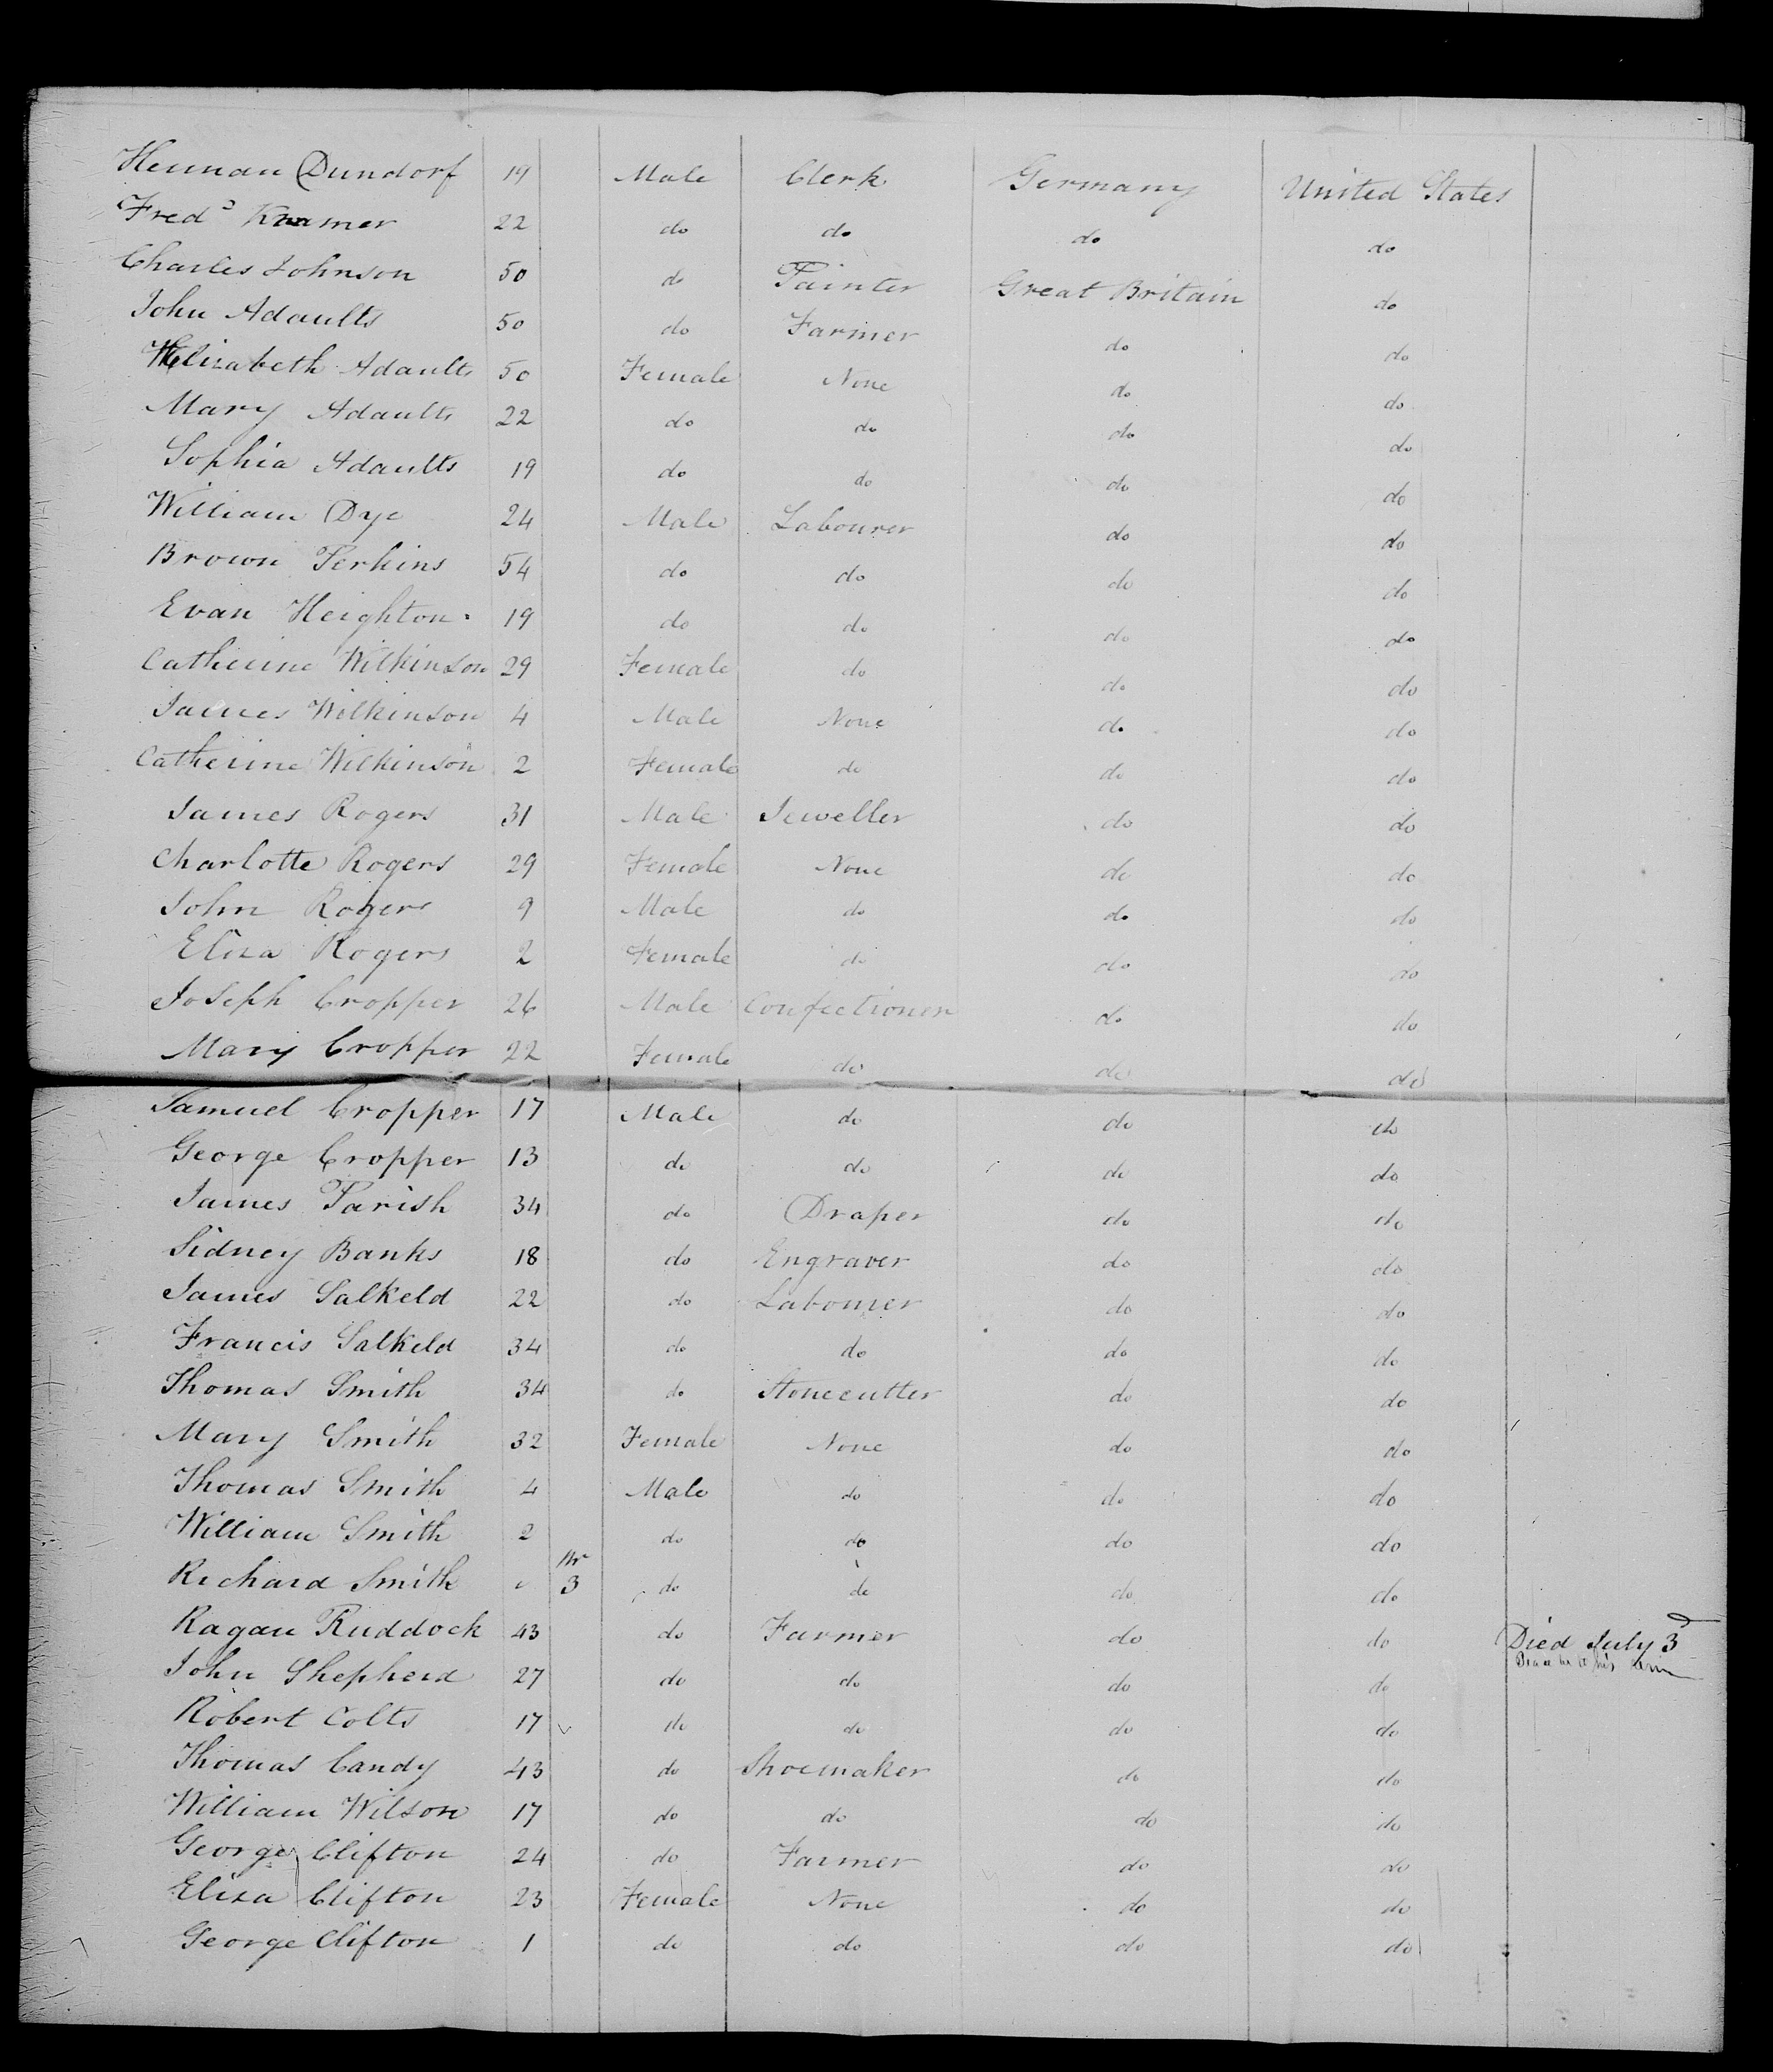 Herman Dundorf 19 Male Clerk Germany United States
Fredᵏ Kramer 22 do do do do
Charles Johnson 50 do Painter Great Britain do
John Adaults 50 do Farmer do do
Elizabeth Adaults 50 Female None do do
Mary Adaults 22 do do do do
Sophia Adaults 19 do do do do
William Dye 24 Male Labourer do do
Brown Perkins 54 do do do do
Evan Heighton 19 do do do do
Catherine Wilkinson 29 Female do do do
James Wilkinson 4 Male None do do
Catherine Wilkinson 2 Female do do do
James Rogers 31 Male Jeweller do do
Charlotte Rogers 29 Female None do do
John Rogers 9 Male do do do
Eliza Rogers 2 Female do do do
Joseph Cropper 26 Male Confectioner do do
Mary Cropper 22 Female do do do
Samuel Cropper 17 Male do do do
George Cropper 13 do do do do
James Parish 34 do Draper do do
Sidney Banks 18 do Engraver do do
James Salkeld 22 do Labourer do do
Francis Salkeld 34 do do do do
Thomas Smith 34 do Stonecutter do do
Mary Smith 32 Female None do do
Thomas Smith 4 Male do do do
William Smith 2 do do do do
Richard Smith 3 do do do do
Ragan Ruddock 43 do Farmer do do Died July 3ᵈ
John Shepherd 27 do do do do
Robert Colts 17 do do do do
Thomas Candy 43 do Shoemaker do do
William Wilson 17 do do do do
George Clifton 24 do Farmer do do
Eliza Clifton 23 Female None do do
George Clifton 1 do do do do